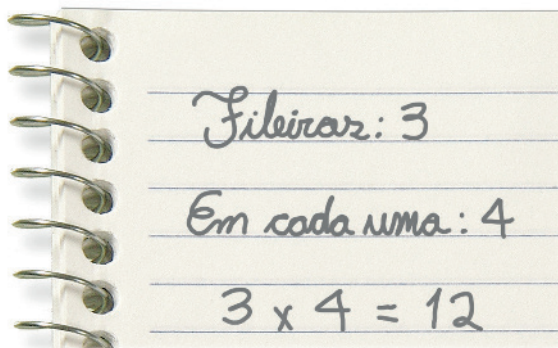 Fileiras: 3
Em cada uma: 4
3 x 4 = 12